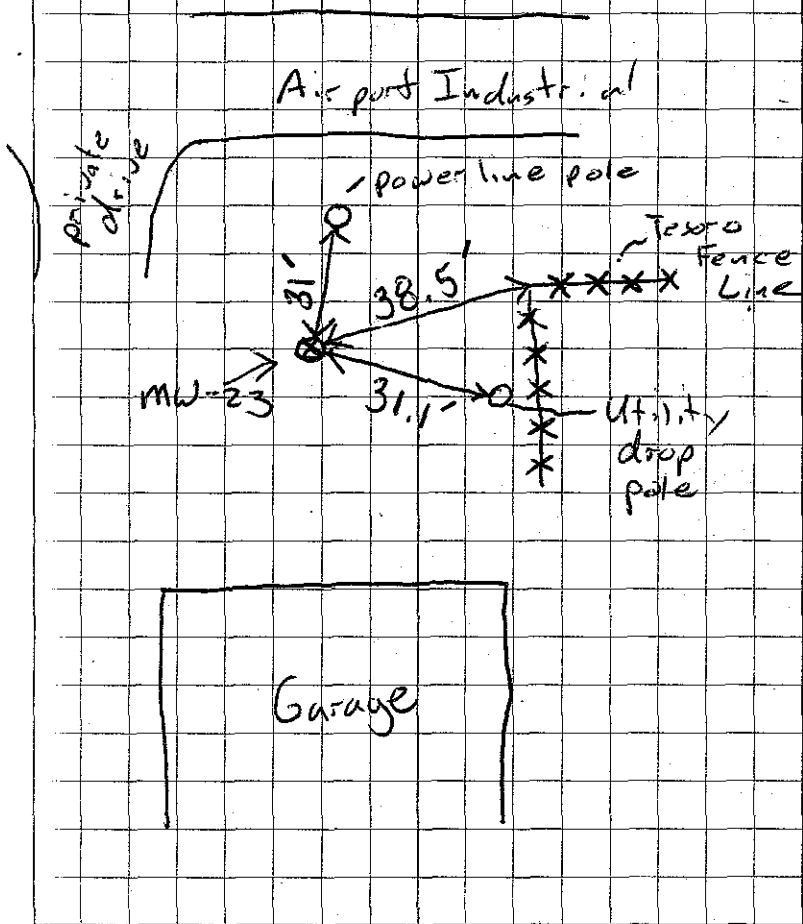 Airport Industrial
private
drive
power line pole
Tesoro
Fence
Line
31'
38.5'
MW-23
31.1'
Utility
drop
pole
Garage